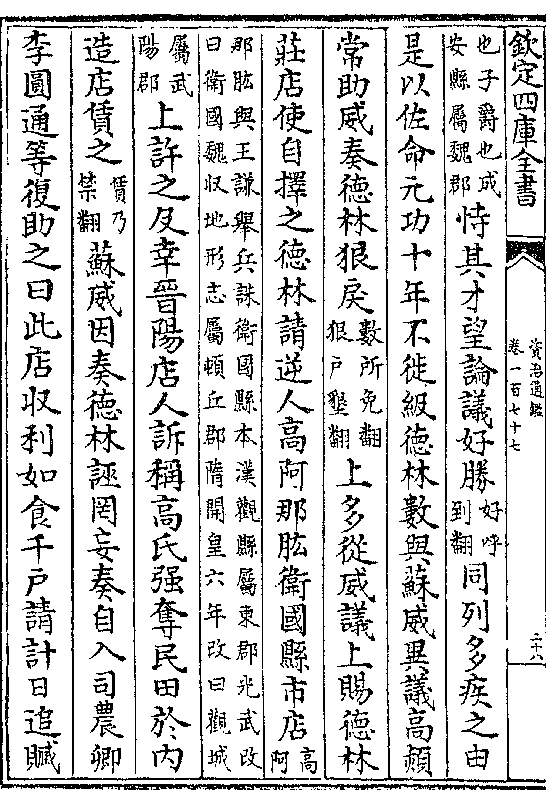 欽定四庫全書
資治通鑑
卷一百七十七
二十八
也子爵也成
安縣屬魏郡
恃其才望論議好勝
好呼
到翻
同列多疾之由
是以佐命元功十年不徙級德林數與蘇威異議高熲
常助威奏德林狠戾
數所角翻
狠戸墾翻
上多從威議上賜德林
莊店使自擇之德林請逆人高阿那肱衛國縣市店
高
阿
那肱與王謙舉兵誅衛國縣本漢觀縣屬東郡光武改
曰衛國魏收地形志屬頓丘郡隋開皇六年改曰觀城
屬武
陽郡
上許之及幸晉陽店人訴稱高氏强奪民田於内
造店賃之
賃乃
禁翻
蘇威因奏德林誣罔妄奏自入司農卿
李圓通等復助之曰此店収利如食千戸請計日追贓